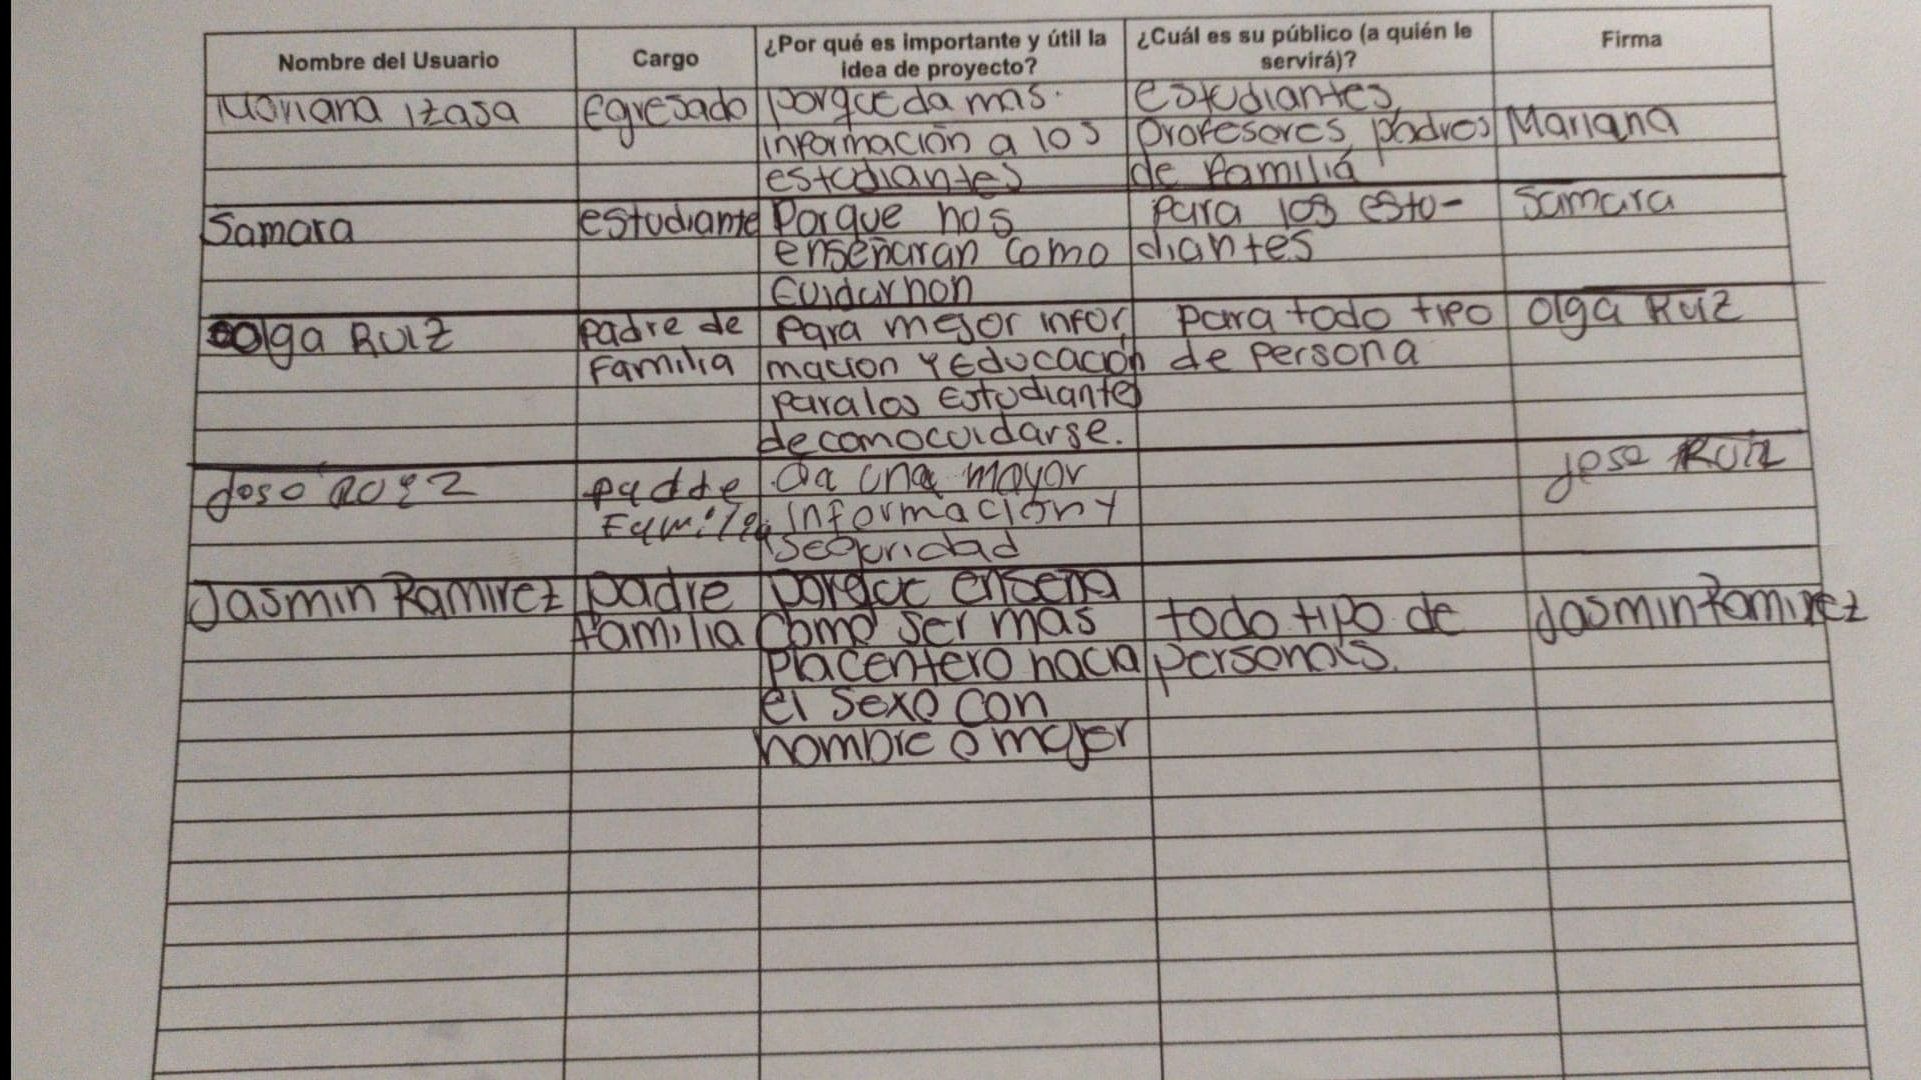 Nombre del Usuario
Cargo
¿Por qué es importante y útil la
idea de proyecto?
¿Cuál es su público (a quién le
servirá)?
Firma
Mariana Izasa
Egresado
porque da mas
información a los
estudiantes
estudiantes,
profesores, padres
de familiá
Mariana
Samara
estudiante
Porque nos
enseñaran como
cuidarnon
para los estu-
diantes
Samara
olga Ruiz
padre de
Familia
Para mejor infor
macion y Educación
para los Estudiantes
de como cuidarse.
para todo tipo
de persona
olga Ruiz
José Ruiz
padde
Familia
da una mayor
información y
seguridad
jose Ruiz
Jasmin Ramirez
padre
familia
porque enseña
como ser mas
placentero hacia
el sexo con
hombre o mujer
todo tipo de
personas.
Jasmin Ramirez